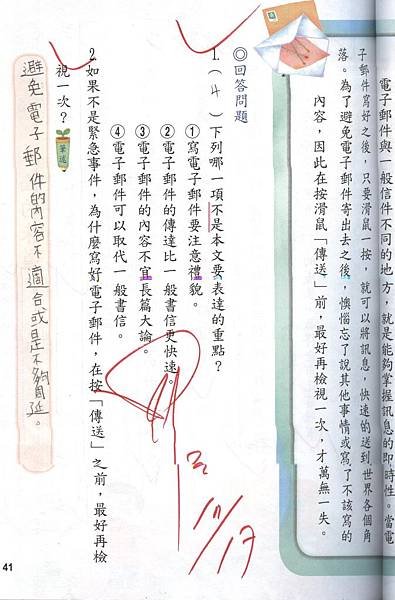 電子郵件與一般信件不同的地方，就是能夠掌握訊息的即時性。當電
子郵件寫好之後，只要滑鼠一按，就可以將訊息，快速的送到世界各個角
落。為了避免電子郵件寄出去之後，懊惱忘了說其他事情或寫了不該寫的
內容，因此在按滑鼠「傳送」前，最好再檢視一次，才萬無一失。
◎回答問題
1.（4）下列哪一項不是本文要表達的重點？
①寫電子郵件要注意禮貌。
②電子郵件的傳達比一般書信更快速。
③電子郵件的內容不宜長篇大論。
④電子郵件可以取代一般書信。
2.如果不是緊急事件，為什麼寫好電子郵件，在按「傳送」之前，最好再檢
視一次？
筆述
避免電子郵件的內容不適合或是不夠周延。
11/17
41